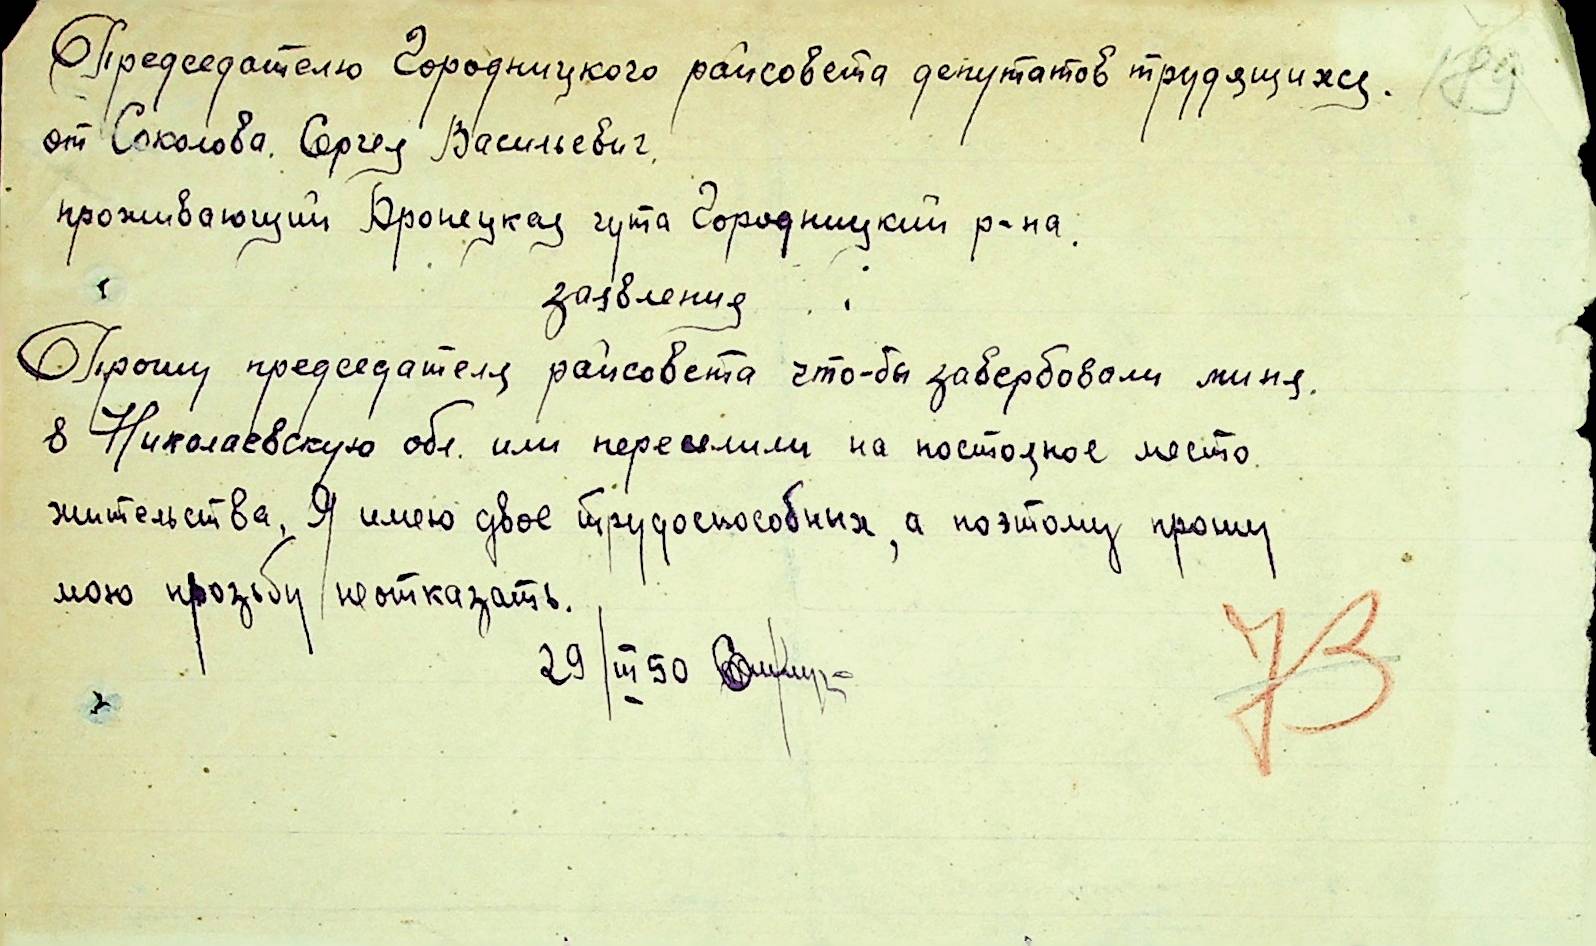 Председателю Городницкого райсовета депутатов трудящихся.
от Соколова. Сергея Васильевич.
проживающий Дронецкая гута Городницкий р-на.
заявления
Прошу председателя райсовета что-бы завербовали миня.
в Николаевскую обл. или переселили на постояное место
жительства, Я имею двое трудоспособных, а поэтому прошу
мою прозьбу неотказать.
29/III 50
73
189